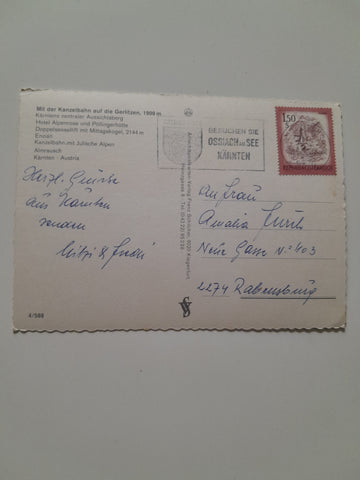 Mit der Kanzelbahn auf die Gerlitzen, 1909 m
Kärntens zentraler Aussichtsberg
Hotel Alpenrose und Pöllingerhütte
Doppelsessellift mit Mittagskogel, 2144 m
Enzian
Kanzelbahn mit Julische Alpen
Almrausch
Kärnten · Austria
Herzl. Grüße
aus Kärnten
senden
BESUCHEN SIE
OSSIACH AM SEE
KÄRNTEN
1.50
REPUBLIK ÖSTERREICH
An Frau
Amalia
Neue Gasse No 403
2274 Rabensburg
4/588